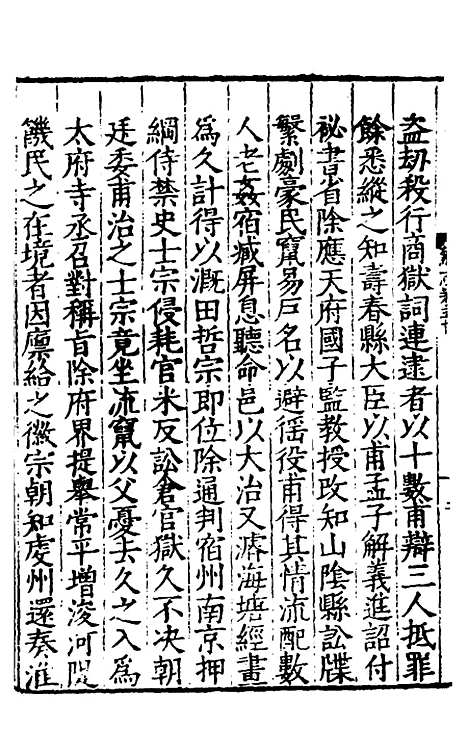 盗劫殺行商獄詞連逮者以十數甫辯三人抵罪
餘悉縱之知壽春縣大臣以甫孟子解義進詔付
祕書省除應天府國子監教授改知山陰縣訟牒
繁劇豪民竄易戶名以避徭役甫得其情流配數
人老姦宿臧屏息聽命邑以大治又濬海塘經畫
爲久計得以溉田哲宗即位除通判宿州南京押
綱侍禁史士宗侵耗官米反訟倉官獄久不决朝
廷委甫治之士宗竟坐流竄以父憂去久之入爲
太府寺丞召對稱旨除府界提舉常平增浚河隄
饑民之在境者因廪給之徽宗朝知處州還奏淮